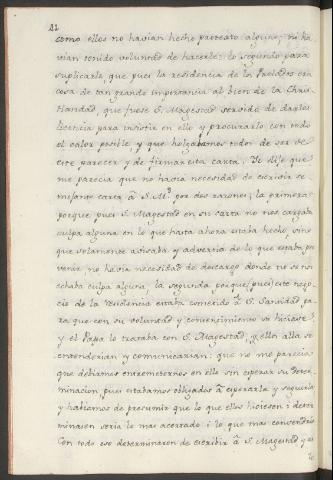 22
como ellos no havian hecho protexto alguno, ni ha
vian tenido voluntad de hacerle: lo segundo para
suplicarle, que pues la residencia de los Prelados era
cosa de tan grande importancia al bien de la Chris
tiandad, que fuese S. Magestad servido de darles
licencia para insistir en ello y procurarlo con todo
el calor posible y que holgabamos todos de ser de
este parecer y de firmar esta carta. Yo dije que
me parecia que no havia necesidad de escrivir se
mejante carta à S. M.d por dos razones; la primera
porque pues S. Magestad en su carta no nos cargaba
culpa alguna en lo que hasta ahora estaba hecho, sino
que solamente avisaba y advertia de lo que estaba por
venir, no havia necesidad de descargo donde no se nos
echaba culpa alguna, la segunda porque pues este nego
cio de la residencia estaba cometido à S. Santidad pa
ra que con su voluntad y consentimiento se hiciese,
y el Papa lo trataba con S. Magestad, y ellos alla se
entenderian y comunicarian: que no me parecia
que debiamos entremeternos en ello sin esperar su deter
minacion, pues estabamos obligados à esperarla y seguirla
y habiamos de presumir que lo que ellos hiciesen i deter
minasen seria lo mas acertado i lo que mas convendria
Con todo eso determinaron de escribir à S. Magestad y